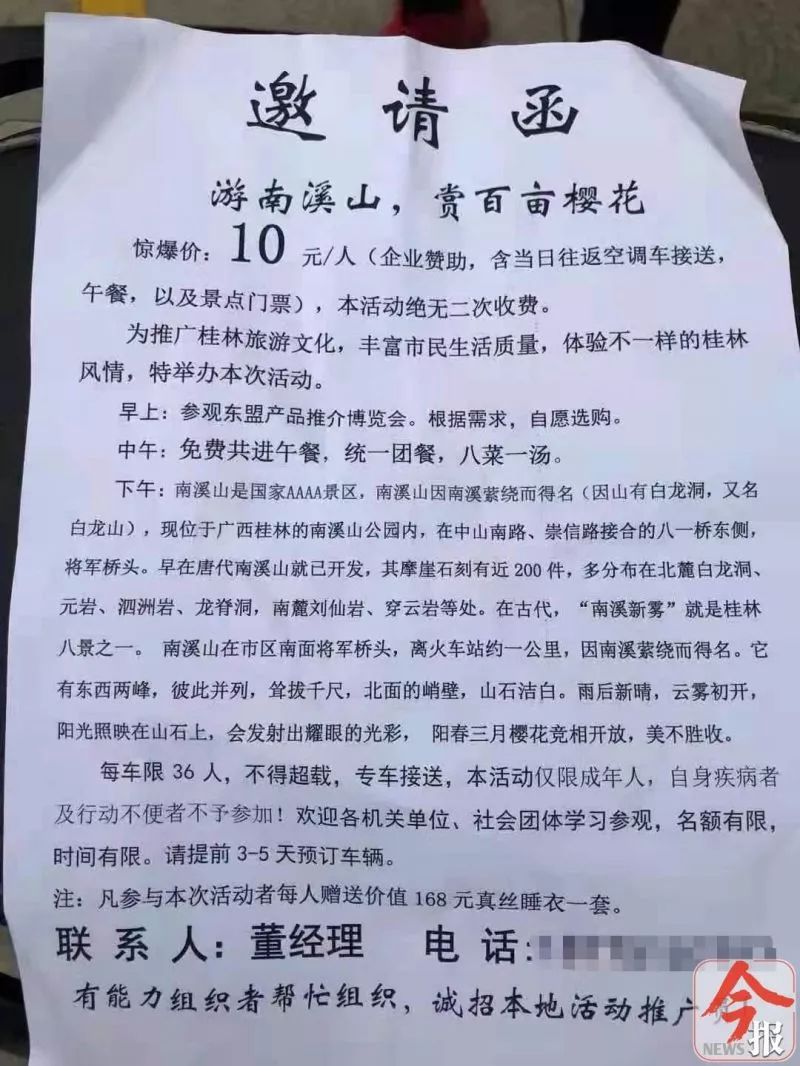 邀请函
游南溪山，赏百亩樱花
惊爆价：10 元/人（企业赞助，含当日往返空调车接送，
午餐，以及景点门票），本活动绝无二次收费。
为推广桂林旅游文化，丰富市民生活质量，体验不一样的桂林
风情，特举办本次活动。
早上：参观东盟产品推介博览会。根据需求，自愿选购。
中午：免费共进午餐，统一团餐，八菜一汤。
下午：南溪山是国家AAAA景区，南溪山因南溪萦绕而得名（因山有白龙洞，又名
白龙山），现位于广西桂林的南溪山公园内，在中山南路、崇信路接合的八一桥东侧，
将军桥头。早在唐代南溪山就已开发，其摩崖石刻有近 200 件，多分布在北麓白龙洞、
元岩、泗洲岩、龙脊洞，南麓刘仙岩、穿云岩等处。在古代，“南溪新雾”就是桂林
八景之一。 南溪山在市区南面将军桥头，离火车站约一公里，因南溪萦绕而得名。它
有东西两峰，彼此并列，耸拔千尺，北面的峭壁，山石洁白。雨后新晴，云雾初开，
阳光照映在山石上，会发射出耀眼的光彩， 阳春三月樱花竞相开放，美不胜收。
每车限 36 人，不得超载，专车接送，本活动仅限成年人，自身疾病者
及行动不便者不予参加！欢迎各机关单位、社会团体学习参观，名额有限，
时间有限。请提前 3-5 天预订车辆。
注：凡参与本次活动者每人赠送价值 168 元真丝睡衣一套。
联 系 人：董经理 电 话：
有能力组织者帮忙组织，诚招本地活动推广
今报
NEWS